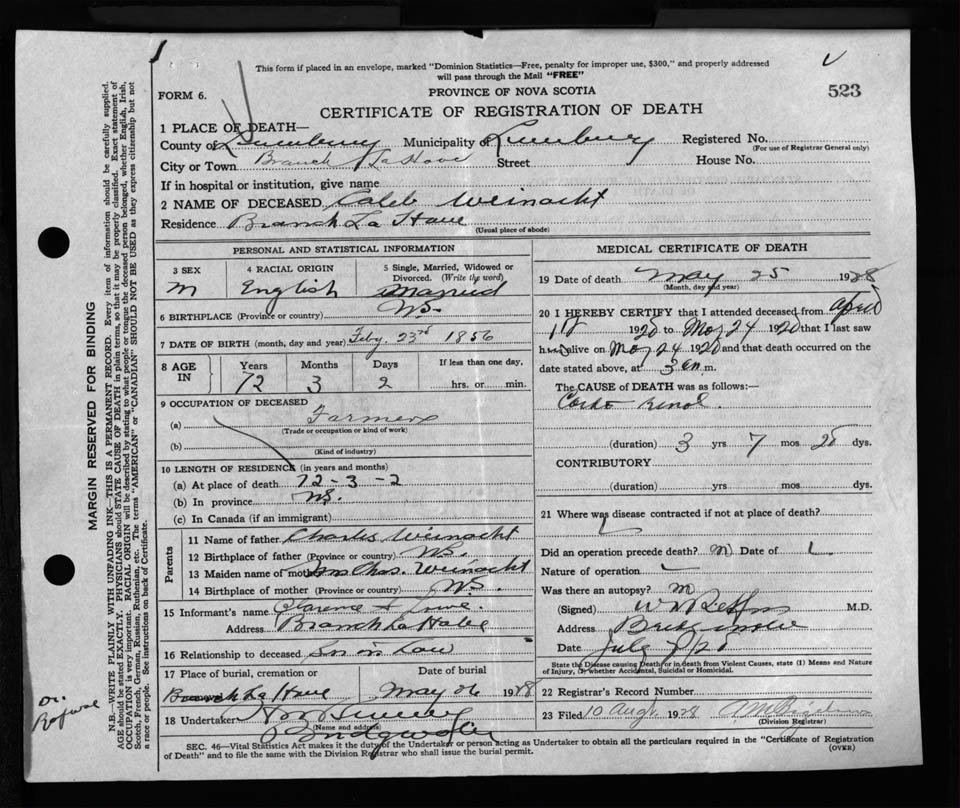 This form if placed in an envelope, marked "Dominion Statistics—Free, penalty for improper use, $300," and properly addressed
will pass through the Mail "FREE"
FORM 6.
PROVINCE OF NOVA SCOTIA
523
CERTIFICATE OF REGISTRATION OF DEATH
1 PLACE OF DEATH—
County of Lunenburg Municipality of Lunenburg Registered No.
(For use of Registrar General only)
City or Town Branch LaHave Street House No.
If in hospital or institution, give name
2 NAME OF DECEASED Caleb Weinacht
Residence Branch La Have
(Usual place of abode)
PERSONAL AND STATISTICAL INFORMATION
3 SEX 4 RACIAL ORIGIN 5 Single, Married, Widowed or Divorced. (Write the word)
M English Married
6 BIRTHPLACE (Province or country) NS.
7 DATE OF BIRTH (month, day and year) Feby. 23rd 1856
8 AGE IN Years Months Days If less than one day,
72 3 2 hrs. or min.
9 OCCUPATION OF DECEASED
(a) Farmer
(Trade or occupation or kind of work)
(b)
(Kind of industry)
10 LENGTH OF RESIDENCE (in years and months)
(a) At place of death 72-3-2
(b) In province NS.
(c) In Canada (if an immigrant)
Parents
11 Name of father Charles Weinacht
12 Birthplace of father (Province or country) NS.
13 Maiden name of mother Mrs Chas. Weinacht
14 Birthplace of mother (Province or country) NS.
15 Informant's name Clarence A
Address Branch LaHave
16 Relationship to deceased Son in Law
17 Place of burial, cremation or Date of burial
Branch La Have May 26 1928
18 Undertaker
(Name and address)
Bridgewater
MEDICAL CERTIFICATE OF DEATH
19 Date of death May 25 1928
(Month, day and year)
20 I HEREBY CERTIFY that I attended deceased from April
1920 to May 24 1920 that I last saw
h alive on May 24 1920 and that death occurred on the
date stated above, at 3 m.
The CAUSE of DEATH was as follows:—
Cardio renal.
(duration) 3 yrs 7 mos 25 dys.
CONTRIBUTORY
(duration) yrs mos dys.
21 Where was disease contracted if not at place of death?
Did an operation precede death? Date of
Nature of operation
Was there an autopsy?
(Signed) M.D.
Address Bridgewater
Date July
State the Disease causing Death or in death from Violent Causes, state (1) Means and Nature
of Injury, (2) whether Accidental, Suicidal or Homicidal.
22 Registrar's Record Number
23 Filed 10 Augt. 1928
(Division Registrar)
SEC. 46—Vital Statistics Act makes it the duty of the Undertaker or person acting as Undertaker to obtain all the particulars required in the "Certificate of Registration
of Death" and to file the same with the Division Registrar who shall issue the burial permit.
(OVER)
MARGIN RESERVED FOR BINDING
N.B.—WRITE PLAINLY WITH UNFADING INK—THIS IS A PERMANENT RECORD. Every item of information should be carefully supplied.
AGE should be stated EXACTLY. PHYSICIANS should STATE CAUSE OF DEATH in plain terms, so that it may be properly classified. Exact statement of
OCCUPATION is very important. RACIAL ORIGIN will be described by stating to what people or tongue the deceased person belonged, whether English, Irish,
Scotch, French, German, Russian, Ruthenian, etc. The terms "AMERICAN" or "CANADIAN" SHOULD NOT BE USED as they express citizenship but not
a race or people. See instructions on back of Certificate.